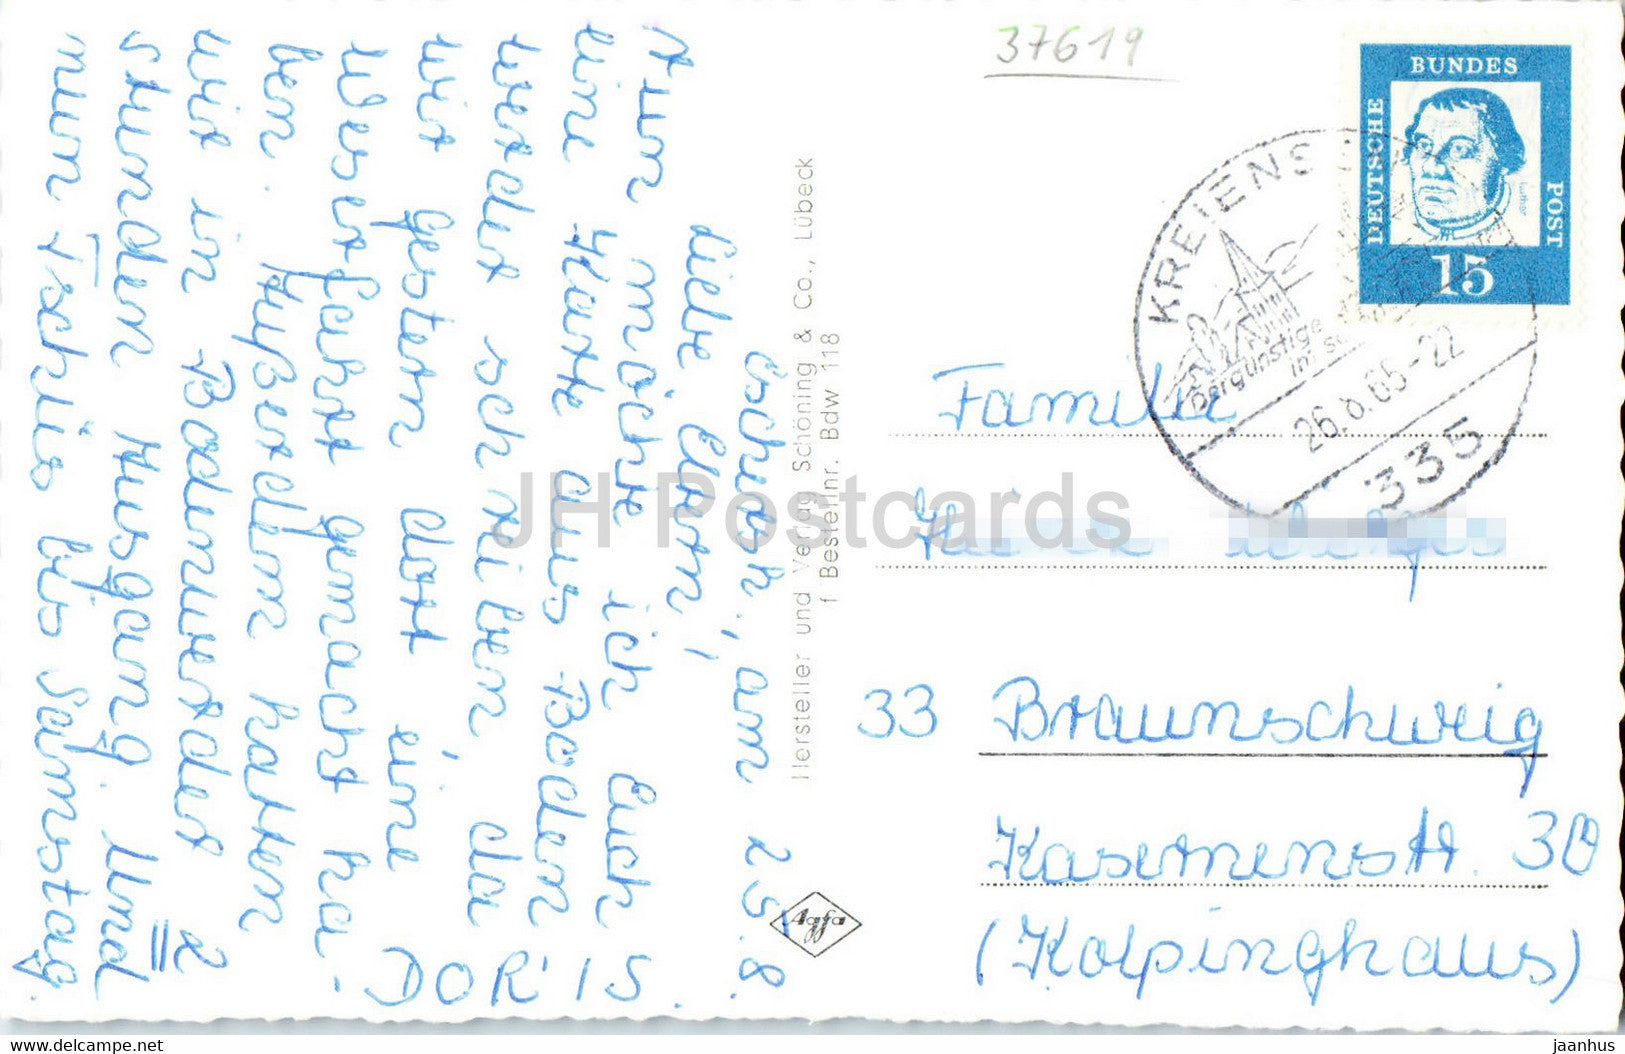 Escherh., am 25.8.
Liebe Eltern,
Nun möchte ich Euch
eine Karte aus Boden
werder schreiben, da
wir gestern dort eine
Weserfahrt gemacht ha-
ben. Außerdem hatten
wir in Bodenwerder 2
Stunden Ausgang. Und
nun Tschüs bis Samstag.
DORIS
37619
DEUTSCHE BUNDES POST
15
Luther
KREIENS
26.8.65-22
335
Familie
33 Braunschweig
Kasernenstr. 30
(Kolpinghaus)
Hersteller und Verlag Schöning & Co., Lübeck
f Bestellnr. Bdw 118
Agfa
JH Postcards
www.delcampe.net
jaanhus